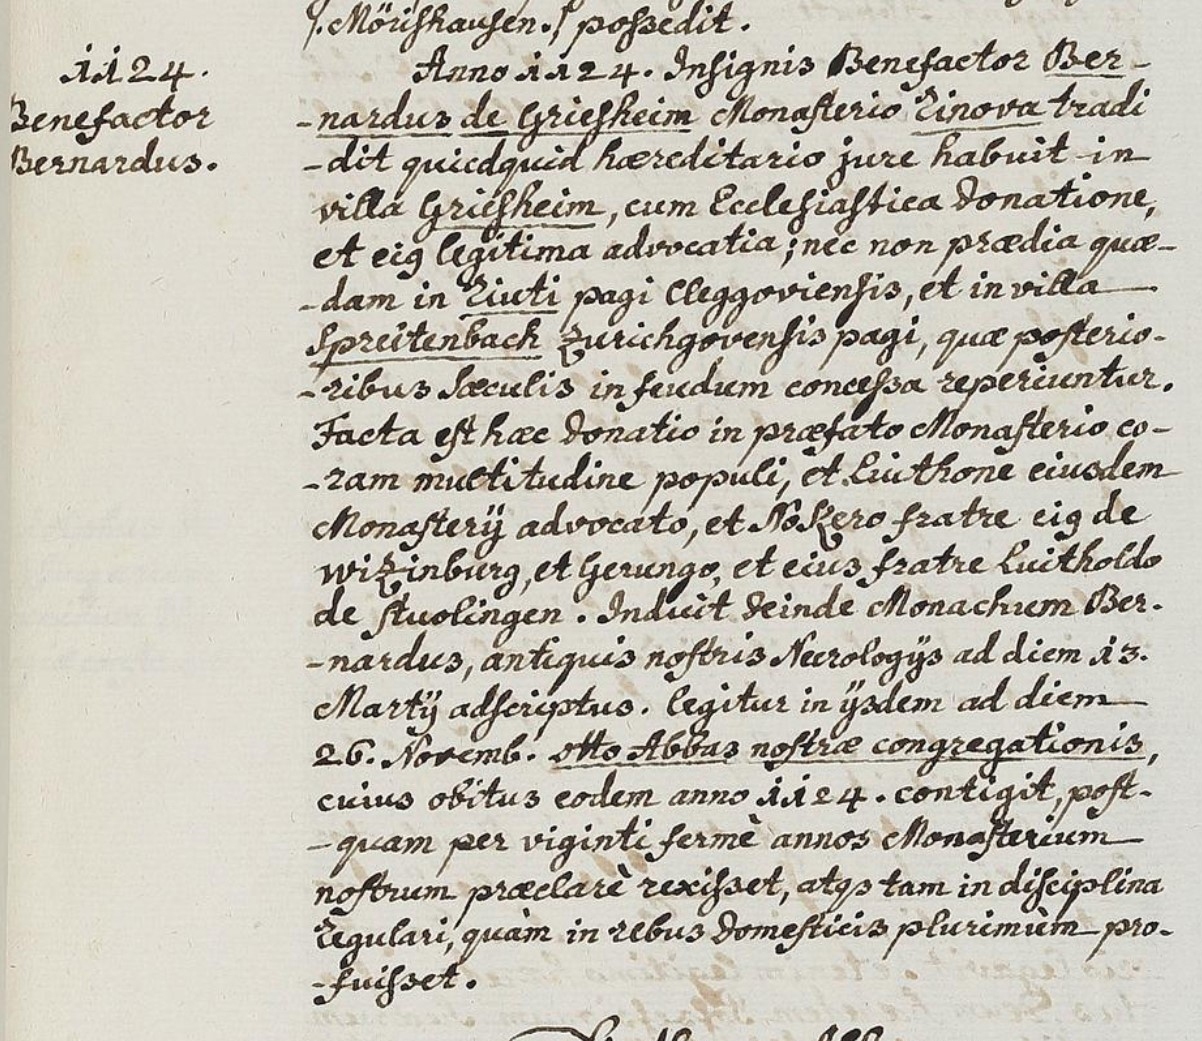 /. Mörishausen./ possedit.
1124.
Benefactor
Bernardus.
Anno 1124. Insignis Benefactor Ber-
-nardus de Griesheim Monasterio Rinova tradi
-dit quicdquid hæreditario jure habuit in
villa Griesheim, cum Ecclesiastica donatione,
et eiꝰ legitima advocatia; nec non prædia quæ-
-dam in Riuti pagi Cleggoviensis, et in villa
Spreitenbach Zurichgovensis pagi, quæ posterio-
-ribus sæculis in feudum concessa reperiuntur.
Facta est hæc donatio in præfato Monasterio co-
-ram multitudine populi, et Luithone eiusdem
Monasterÿ advocato, et Nokero fratre eiꝰ de
Wizinburg, et Gerungo, et eius fratre Luitholdo
de Stuolingen. Induit deinde Monachum Ber-
-nardus, antiquis nostris Necrologÿs ad diem 13.
Martÿ adscriptus. legitur in ÿsdem ad diem
26. Novemb. Otto Abbas nostræ congregationis,
cuius obitus eodem anno 1124. contigit, post-
-quam per viginti fermè annos Monasterium
nostrum præclarè rexisset, atqs tam in disciplina
regulari, quàm in rebus domesticis plurimùm pro-
-fuisset.